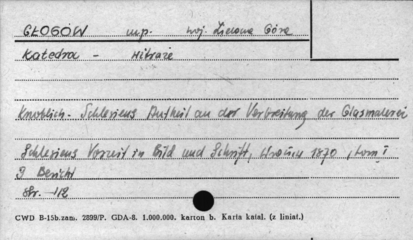 GŁOGÓW m.p. woj. Zielona Góra
Katedra - witraże
Knoblich. Schlesiens Antheil an der Verbreitung der Glasmalerei
Schlesiens Vorzeit in Bild und Schrift, Wrocław 1870, tom I
9 Bericht
Str. 112
CWD B-15b. zam. 2899/P. GDA-8. 1.000.000. karton b. Karta katal. (z liniat.)